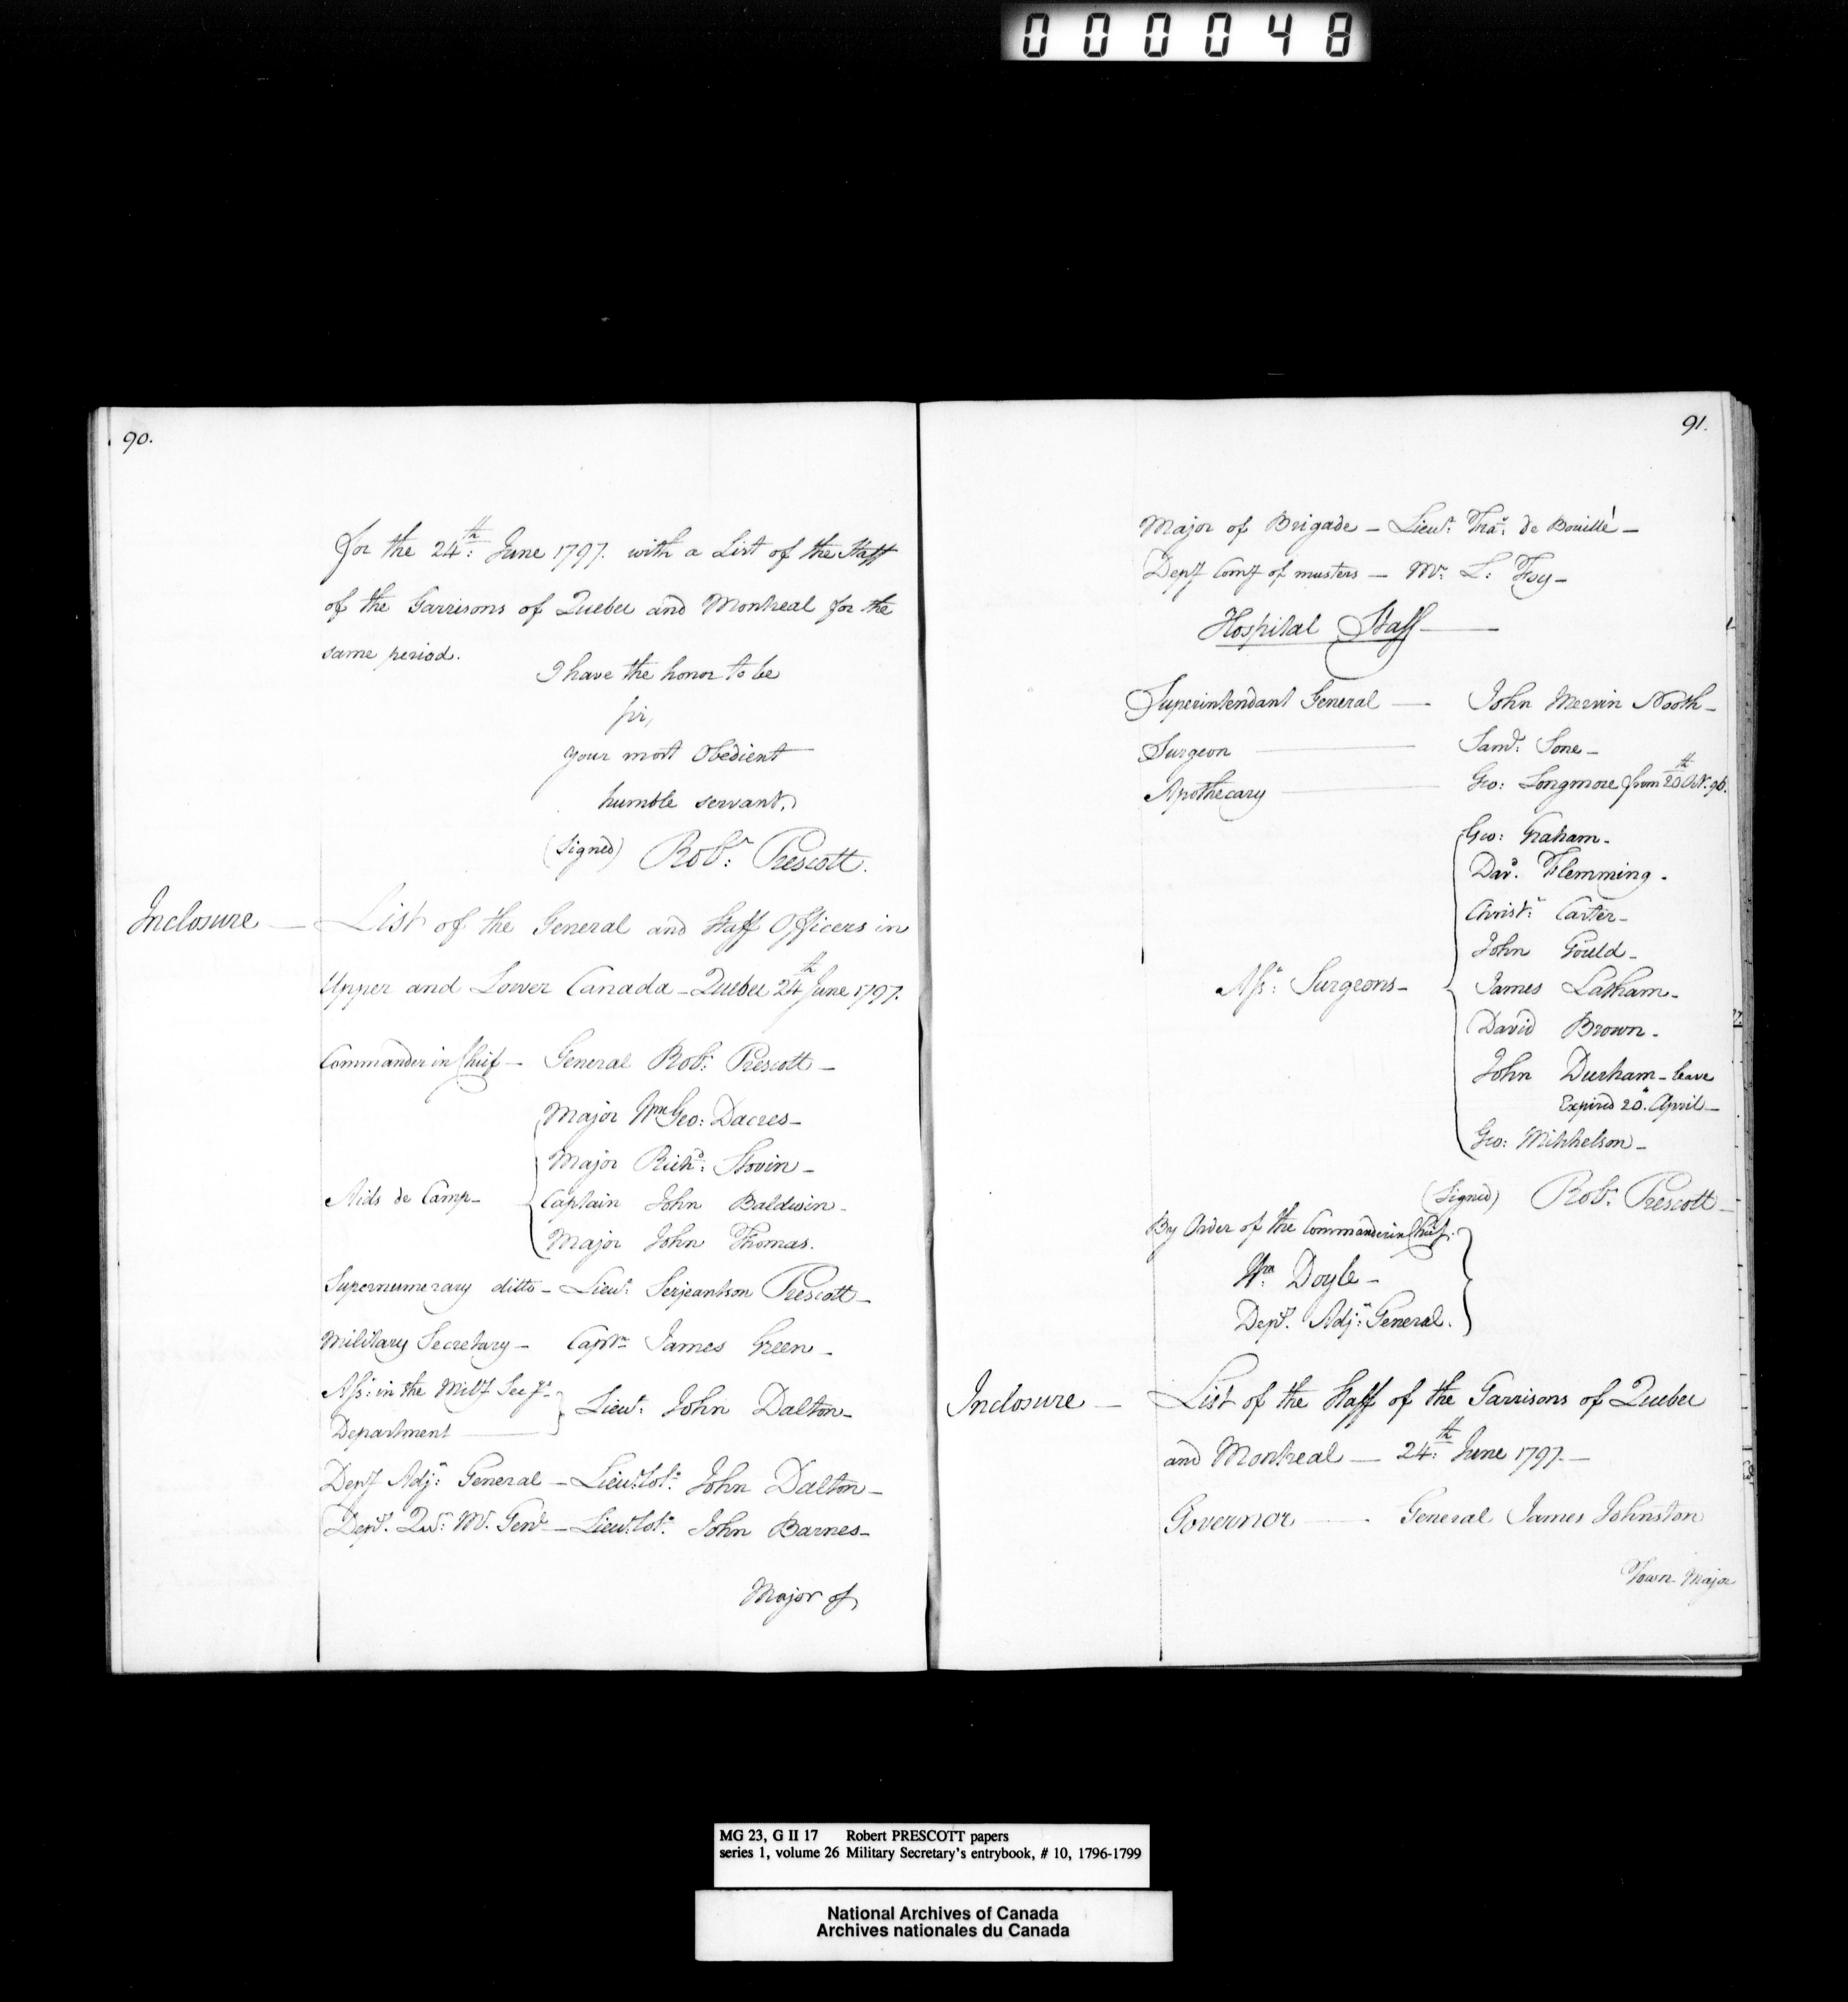 000048
90.
for the 24th: June 1797. with a List of the Staff
of the Garrisons of Quebec and Montreal for the
same period.
I have the honor to be
Sir,
your most Obedient
humble servant,
(Signed) Robt: Prescott.
Inclosure — List of the General and Staff Officers in
Upper and Lower Canada - Quebec 24th June 1797.
Commander in Chief - General Robt: Prescott -
Aids de Camp -
Major Wm Geo: Dacres -
Major Richd: Stovin -
Captain John Baldwin -
Major John Thomas.
Supernumerary ditto - Lieut: Serjeantson Prescott -
Military Secretary - Captn James Green -
Asst: in the Mility Secys
Department — } Lieut: John Dalton -
Depy Adjt: General - Lieut: Col: John Dalton -
Depy. Qur: Mr. Genl - Lieut: Col: John Barnes -
Major of
91.
Major of Brigade - Lieut: Fras: de Bouillé -
Depy Comy of musters - Mr: L: Foy -
Hospital Staff —
Superintendant General — John Mervin Nooth -
Surgeon — Saml: Sone -
Apothecary — Geo: Longmore from 20th Oct. 96.
Asst: Surgeons -
Geo: Graham -
Davd. Flemming -
Christr: Carter -
John Gould -
James Latham -
David Brown -
John Durham - leave
Expired 20th. April -
Geo: Mihhelson -
(Signed) Robt: Prescott -
By Order of the Commander in Chief.
Wm Doyle -
Depy. Adjt: General. }
Inclosure — List of the Staff of the Garrisons of Quebec
and Montreal — 24th: June 1797 -
Governor — General James Johnston
Town Major
MG 23, G II 17 Robert PRESCOTT papers
series 1, volume 26 Military Secretary's entrybook, # 10, 1796-1799
National Archives of Canada
Archives nationales du Canada